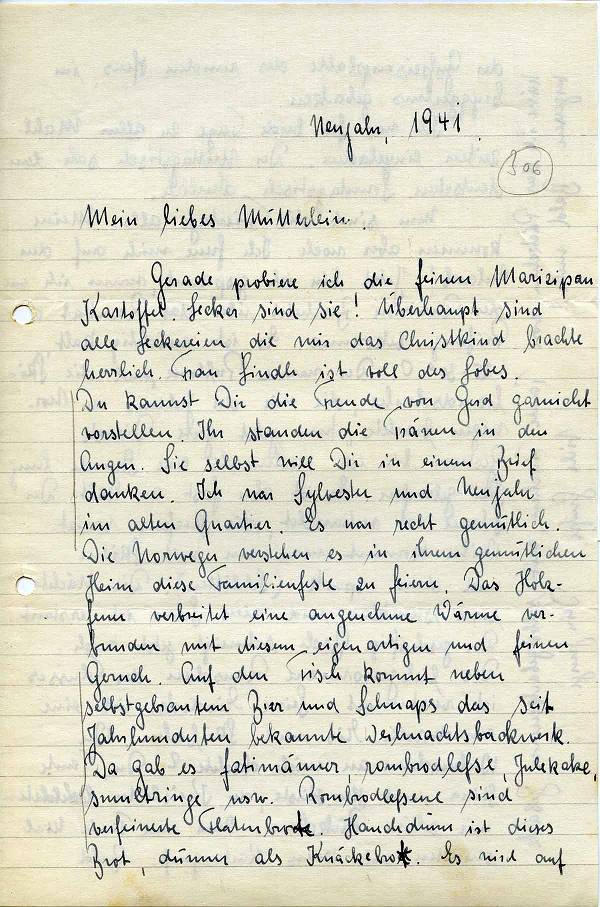 Neujahr, 1941.
306
Mein liebes Mütterlein.
Gerade probiere ich die feinen Marizipan
Kartoffel. Lecker sind sie! Überhaupt sind
alle Leckereien die mir das Christkind brachte
herrlich. Frau Lindh ist voll des Lobes.
Du kannst Dir die Freude von Gerd garnicht
vorstellen. Ihr standen die Tränen in den
Augen. Sie selbst will Dir in einem Brief
danken. Ich war Sylvester und Neujahr
im alten Quartier. Es war recht gemütlich.
Die Norweger verstehen es in ihrem gemütlichen
Heim diese Familienfeste zu feiern. Das Holz-
feuer verbreitet eine angenehme Wärme ver-
bunden mit diesem eigenartigen und feinen
Geruch. Auf den Tisch kommt neben
selbstgebrantem Bier und Schnaps das seit
Jahrhunderten bekannte Weihnachtsbackwerk.
Da gab es fatimänner, rombrodlefse, Julekake,
smultringe usw. Rombrodlefsene sind
verfeinerte Flatenbrote. Hauchdünn ist dieses
Brot, dünner als Knäckebrot. Es wird auf